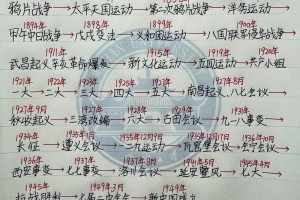 鸦片战争→太平天国运动→第二次鸦片战争→洋务运动
1894年 1898年 1899年 1900年
甲午中日战争→戊戌变法→义和团运动→八国联军侵华战争
1911年 1915年 1919年 1920年
武昌起义辛亥革命爆发→新文化运动→五四运动→共产小组
1921年 1922年 1923年 1925年 1927年 1927年
一大→二大→三大→四大→五大→南昌起义、八七会议
1927年9月
秋收起义→三湾改编→六大→古田会议→九一八事变
1934年 1935年 1935年12月9日
长征→遵义会议→一二九运动→瓦窑堡会议→会宁会议
1936年 1937年 1937年8月 1941年5月 1945年4月
西安事变→七七事变→洛川会议→延安整风→七大→
1945年 1949年3月 1949年
抗战胜利→七届二中全会→新中国成立